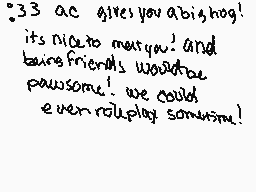 :33 ac gives you a big hug!
its nice to meet you! and
being friends would be
pawsome! we could
even roleplay sometime!